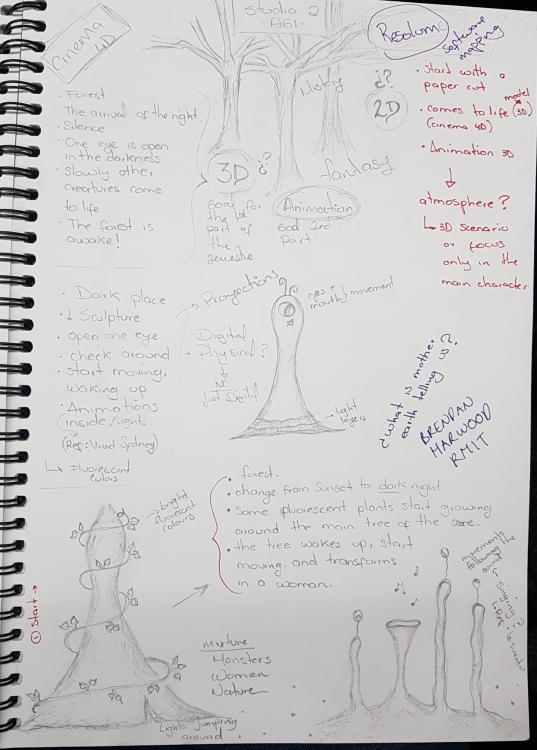 Cinema
4D
Studio 2
-A61-
Resolume
software
mapping
· Forest.
· The arrival of the night.
· Silence
· One eye is open
in the darkness
· Slowly other
creatures come
to life
· The forest is
awake!
3D ¿?
Goal for
the 1st
part of
the
semestre
Animation
Goal 2nd
Part.
fantasy
¿?
2D
· Start with a
paper cut
· comes to life (3D)
model
(cinema 4D)
· Animation 3D
atmosphere?
3D scenario
or focus
only in the
main character
· Dark place
· 1 Sculpture
· open one eye
· check around
· start moving,
waking up
· Animations
inside/lights
(Ref: Vivid Sydney)
Fluorescent
colors
Proyections
Digital
+ Physical?
NO
Just Digital
eyes +
mouth } movement
light
layers
¿what is mother
earth telling us?
BRENDAN
HARWOOD
RMIT
· forest.
· change from sunset to dark night
· some fluorescent plants start growing
around the main tree of the scene.
· the tree wakes up, start
moving and transforms
in a woman.
bright
fluorescent
colours
① Start →
Mixture
Monsters
Women
Nature
Lights jumping
around
movements
following the
sound
singing?